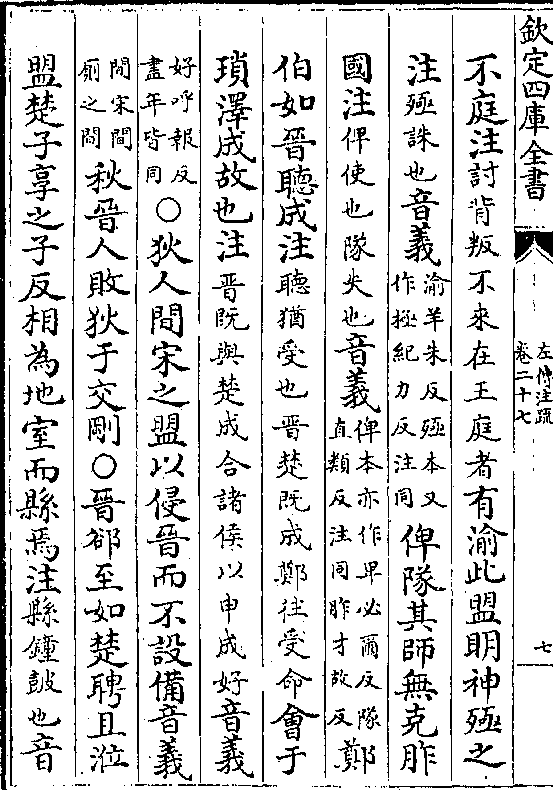 欽定四庫全書
左傳注疏
卷二十七
七
不庭注討背叛不來在王庭者有渝此盟明神殛之
注殛誅也音義渝羊朱反殛本又作極紀力反注同俾隊其師無克胙
國注俾使也隊失也音義俾本亦作卑必爾反隊直類反注同胙才故反鄭
伯如晉聽成注聽猶受也晉楚既成鄭往受命會于
瑣澤成故也注晉既與楚成合諸侯以申成好音義
好呼報反盡年皆同○狄人間宋之盟以侵晉而不設備音義
間宋間廁之間秋晉人敗狄于交剛○晉郤至如楚聘且涖
盟楚子享之子反相為地室而縣焉注縣鐘鼓也音